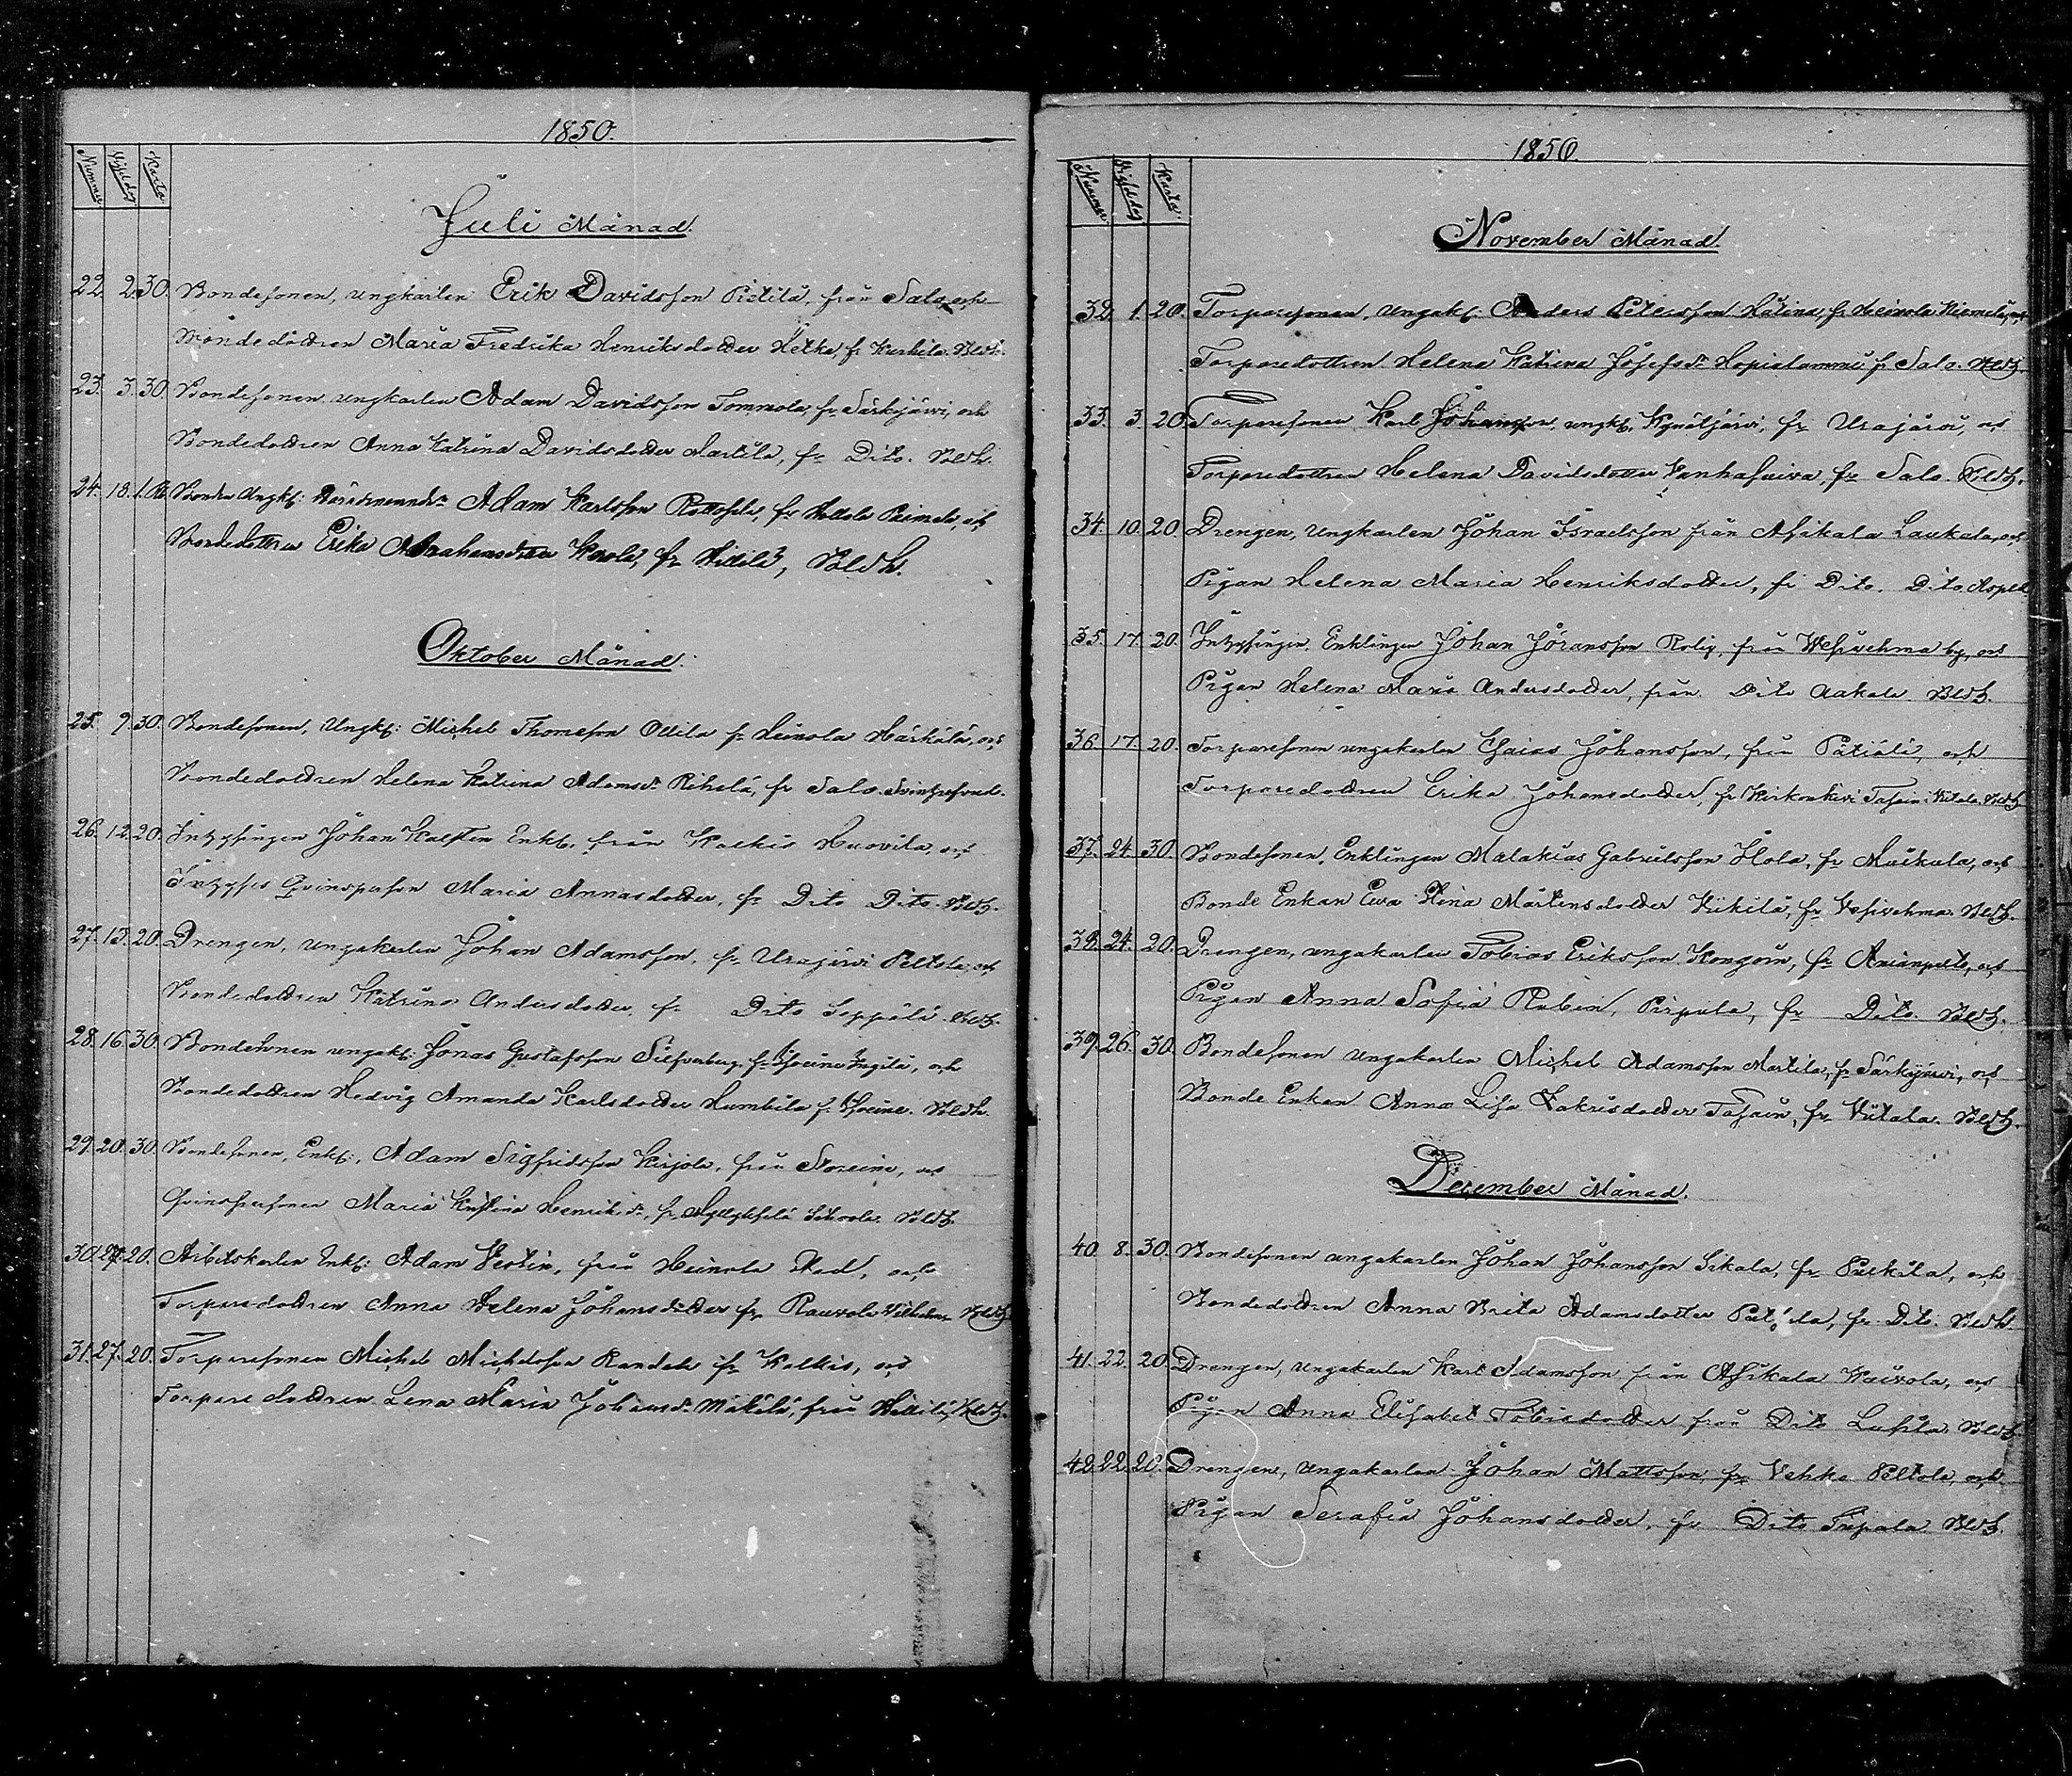 1850.
Nummer Vigseldag Karta
Juli Månad.
22. 2. 30. Bondesonen, ungkarlen Erik Davidsson Pietilä, från Salo, och
Bondedottren Maria Fredrika Henriksdotter Hetka, fr Kurhila. Bldh.
23. 3. 30. Bondesonen ungkarlen Adam Davidsson Tommola, fr Särkijärvi, och
Bondedottren Anna Katrina Davidsdotter Martila, fr Dito. Bldh.
24. 18. Bonden Ungk: Adam Karlsson fr Hollola Paimela, och
Bondedottren Erika Abrahamsdotter fr Hillilä, Bldh.
Oktober Månad.
25. 9. 30. Bondesonen, Ungk: Michel Thomeson Ollila fr Heinola Härkälä, och
Bondedottren Helena Katrina Adamsdr Rihelä, fr Salo.
26. 12. 20. Inhysingen Johan Enkl. från Kalkis Huovila, och
Inhyses Qvinsperson Maria Annasdotter, fr Dito Dito. Bldh.
27. 13. 20. Drengen, ungakarlen Johan Adamsson, fr Urajärvi Peltola, och
Bondedottren Katrina Andersdotter, fr Dito Seppälä. Bldh.
28. 16. 30. Bondesonen ungak: Jonas Gustafsson fr Ingilä, och
Bondedottren Hedvig Amanda Karlsdotter Humbila fr Bldh.
29. 20. 30. Bondesonen, Enkl:, Adam Sigfridsson Kirjola, från och
Qvinspersonen Maria Kristina Henriksdr, fr Bldh.
30. 27. 20. Arbetskarlen Enkl: Adam Vestin, från Heinola Stad, och
Torparedottren Anna Helena Johansdotter fr Rauvola Bldh.
31. 27. 20. Torparesonen Michel Michelsson Randele fr Kalkis, och
Torpare dottren Lena Maria Johansdr Mäkilä, från Hillilä, Bldh.
1850
Nummer Vigseldag Karta
November Månad.
32. 1. 20. Torparesonen, ungak: Anders Petersson Hatina, fr Heinola Niemelä, och
Torparedottren Helena Katrina Josefsdr Hopialammi fr Salo. Bldh.
33. 3 20. Torparesonen Karl Johansson, ungk. Kynäljärvi, fr Urajärvi, och
Torparedottren Helena Davidsdotter Vanhasuira, fr Salo. Bldh.
34. 10. 20. Drengen, Ungkarlen Johan Israelsson från Asikala Laukala, och
Pigan Helena Maria Henriksdotter, fr Dito. Dito
35. 17. 20. Inhysingen, Enklingen Johan Jöransson Rolig, från Wesivehma by, och
Pigan Helena Maria Andersdotter, från Dito Aakala. Bldh.
36. 17. 20. Torparesonen ungakarlen Esaias Johansson, från Pätiälä, och
Torparedottren Erika Johansdotter, fr Kirkonkivi Tasain Viitala. Bldh.
37. 24. 30. Bondesonen, Enklingen Malakias Gabrielsson Ilola, fr Maikala, och
Bonde Enkan Ewa Stina Mårtensdotter Kiikilä, fr Vesivehma. Bldh.
38. 24. 20. Drengen, ungakarlen Tobias Eriksson Kongoin, fr Anianpelto, och
Pigan Anna Sofia Rubin, Pirpula, fr Dito. Bldh.
39. 26. 30. Bondesonen ungakarlen Michel Adamsson Martila, fr Särkijärvi, och
Bonde Enkan Anna Lisa Zakrisdotter Tasain, fr Viitala. Bldh.
December Månad.
40. 8. 30. Bondesonen ungakarlen Johan Johansson Sikala, fr Purkila, och
Bondedottren Anna Brita Adamsdotter fr Dito. Bldh.
41. 22. 20. Drengen, ungakarlen Karl Adamsson från Asikala Kaivola, och
Pigan Anna Elisabet Tobiasdotter från Dito Bldh.
42. 22. 20. Drengen, ungakarlen Johan Mattsson, fr Vehka Peltola, och
Pigan Serafia Johansdotter, fr Dito Bldh.